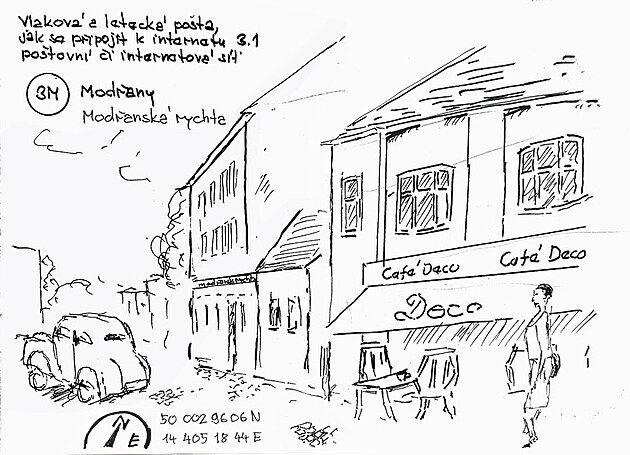 Vlaková a letecká pošta,
jak se připojit k internetu 3.1
poštovní či internetové síti
3M Modřany
Modřanská rychta
Modřanská rychta
Café Deco Café Deco
Deco
N
E
50 002 9606 N
14 405 18 44 E